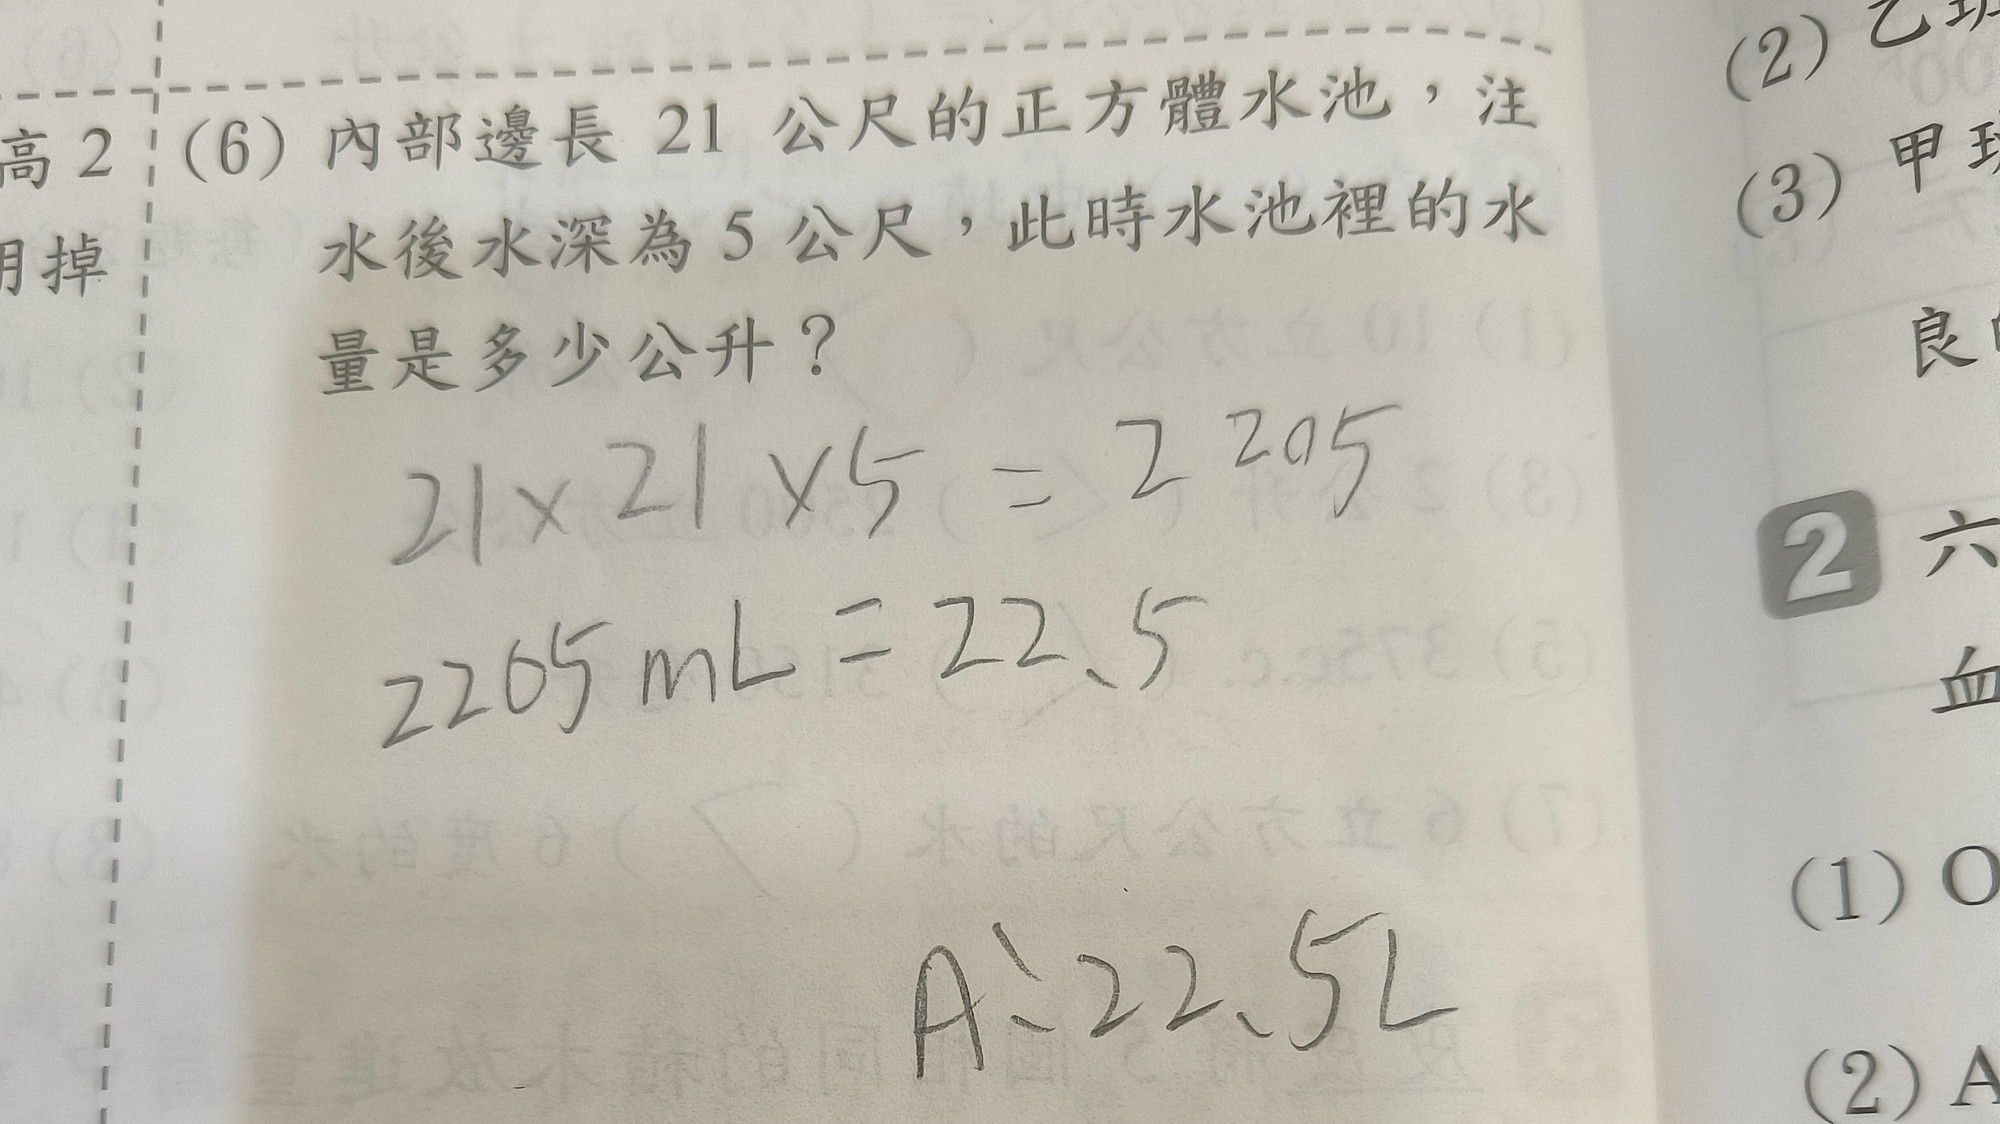 高 2
用掉
(6) 內部邊長 21 公尺的正方體水池，注
水後水深為 5 公尺，此時水池裡的水
量是多少公升？
21×21×5=2205
2205mL=22.5
A:22.5L
(2) 乙班
(3) 甲班
良的
2 六
血
(1) O
(2) A